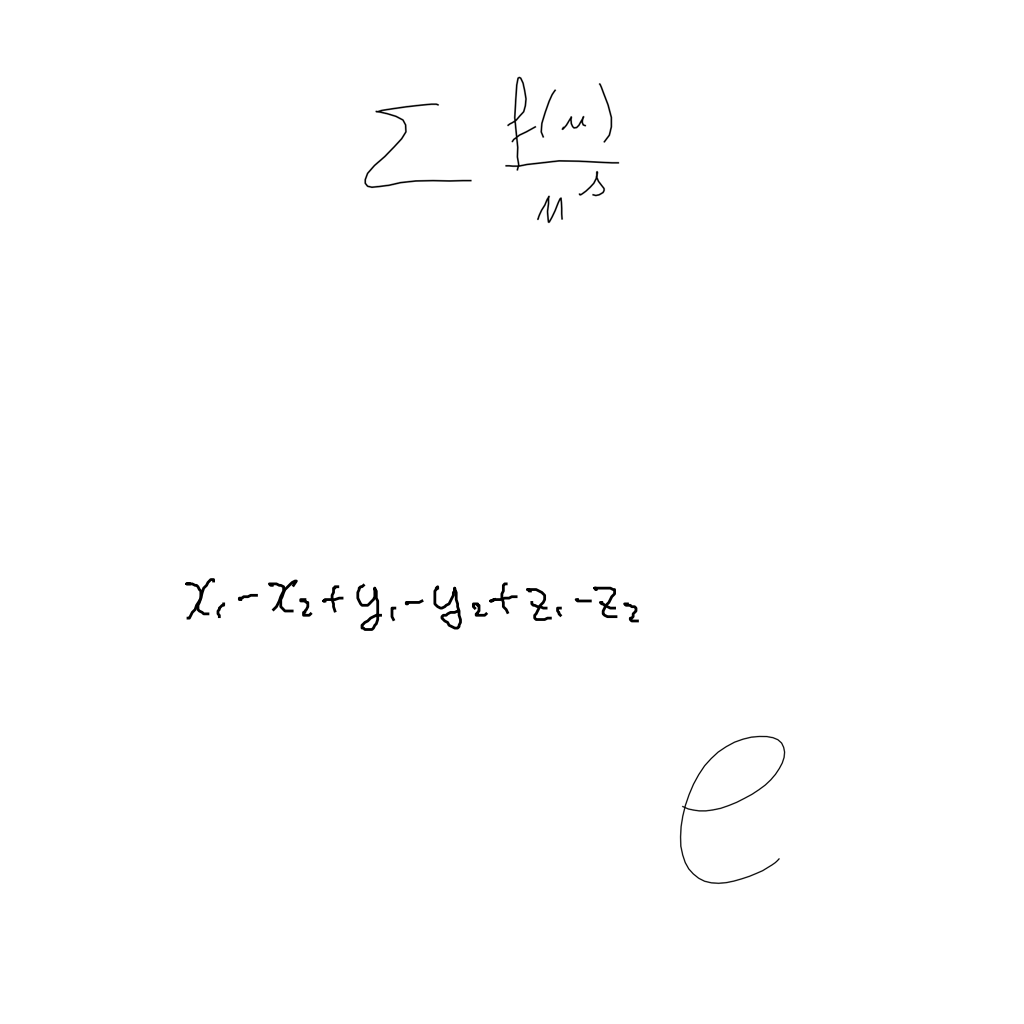 ∑ f(n)/n^s
x₁-x₂+y₁-y₂+z₁-z₂
e